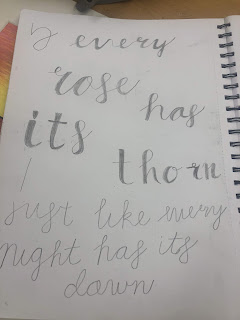 every
rose
has
its
thorn
just like every
night has its
dawn